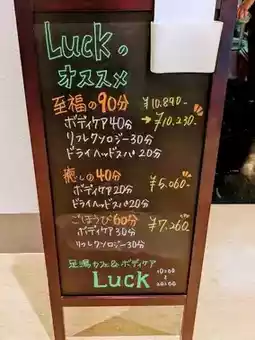 Luckの
オススメ
至福の90分 ¥10.890-
ボディケア40分 → ¥10.230-
リフレクソロジー30分
ドライヘッドスパ20分
癒しの40分
ボディケア20分 ¥5.060-
ドライヘッドスパ20分
ごほうび60分 ¥7.260-
ボディケア30分
リフレクソロジー30分
足湯カフェ&ボディケア
Luck 10:00